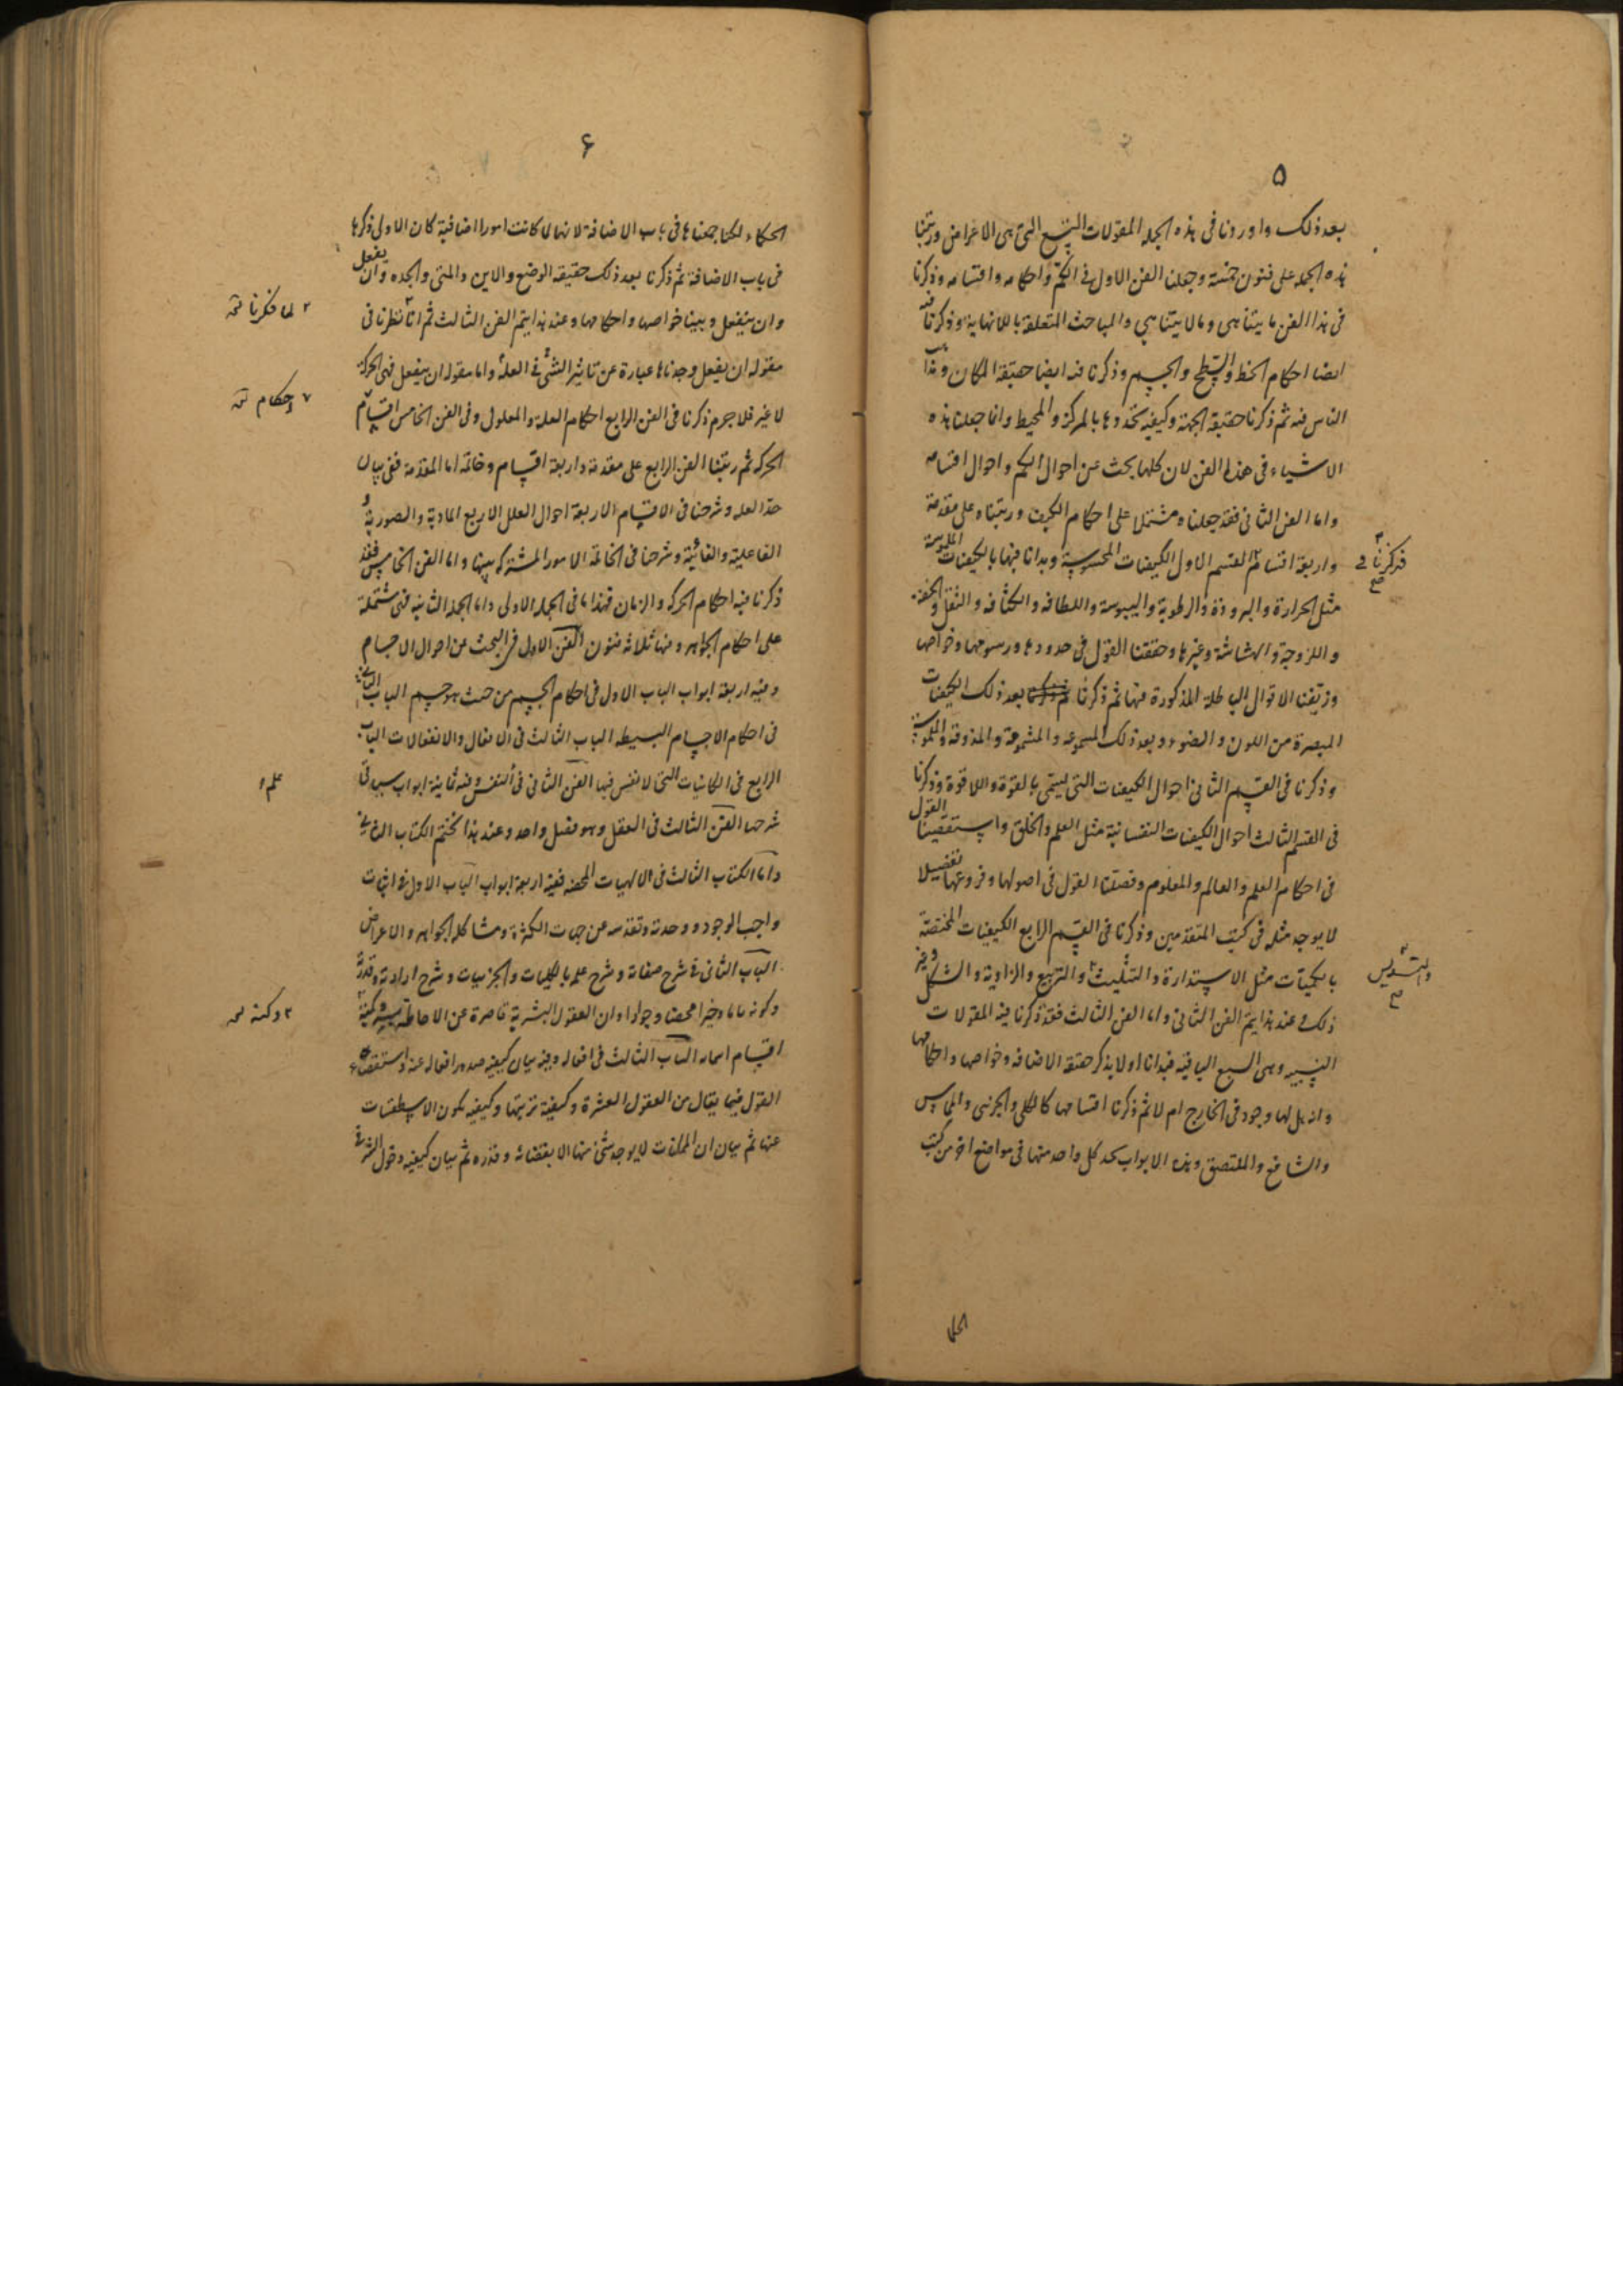 ۵
بعد ذلك واوردنا فى هذه الجملة المقولات التسع التى هى الاعراض ورتبنا
هذه الجملة على فنون خمسة وجعلنا الفن الاول فى الكم واحكامه واقسامه وذكرنا
فى هذا الفن ما يتناهى وما لا يتناهى والمباحث المتعلقة باللانهاية وذكرنا فيه
ايضا احكام الخط والسطح والجسم وذكرنا فيه ايضا حقيقة المكان
الناس فيه ثم ذكرنا حقيقة الجهة وكيفية تحددها بالمركز والمحيط وانما جعلنا هذه
الاشياء فى هذا الفن لان كلها بحث عن احوال الكم واحوال اقسامه
واما الفن الثانى فقد جعلناه مشتملا على احكام الكيف ورتبناه على مقدمة
واربعة اقسام القسم الاول الكيفيات المحسوسة وبدانا فيها بالكيفيات الملموسة
فذكرنا
مثل الحرارة والبرودة والرطوبة واليبوسة واللطافة والكثافة والثقل والخفة
واللزوجة والهشاشة وغيرها وحققنا القول فى حدودها ورسومها وخواصها
وزيفنا الاقوال الباطلة المذكورة فيها ثم ذكرنا بعد ذلك الكيفيات
المبصرة من اللون والضوء وبعد ذلك المسموعة والمشمومة والمذوقة والملموسة
وذكرنا فى القسم الثانى احوال الكيفيات التى تسمى بالقوة واللاقوة وذكرنا
فى القسم الثالث احوال الكيفيات النفسانية مثل العلم والخلق واستقصينا القول
فى احكام العلم والعالم والمعلوم وفصلنا القول فى اصولها وفروعها تفصيلا
لا يوجد مثله فى كتب المتقدمين وذكرنا فى القسم الرابع الكيفيات المختصة
بالكميات مثل الاستدارة والتثليث والتربيع والزاوية والشكل وغير
والتسديس
ذلك وعند هذا يتم الفن الثانى واما الفن الثالث فقد ذكرنا فيه المقولات
النسبية وهى السبع الباقية فبدانا اولا بذكر حقيقة الاضافة وخواصها واحكامها
وانه هل لها وجود فى الخارج ام لا ثم ذكرنا اقسامها كالكلى والجزئى والمماس
والشافع والملتصق وهذه الابواب كل واحد منها فى مواضع اخر من كتب
الحكما
۶
الحكماء لكنا جمعناها فى باب الاضافة لانها لما كانت امورا اضافية كان الاولى ذكرها
فى باب الاضافة ثم ذكرنا بعد ذلك حقيقة الوضع والاين والمتى والجدة وان يفعل
وان ينفعل وبينا خواصها واحكامها وعند هذا يتم الفن الثالث ثم انا نظرنا فى
مقولة ان يفعل وجدناها عبارة عن تاثير الشئ فى العلة واما مقولة ان ينفعل فهى الحركة
لا غير فلا جرم ذكرنا فى الفن الرابع احكام العلة والمعلول وفى الفن الخامس اقسام
احكام
الحركة ثم رتبنا الفن الرابع على مقدمة واربعة اقسام وخاتمة اما المقدمة ففى بيان
حد العلة وشرحنا فى الاقسام الاربعة احوال العلل الاربع المادية والصورية و
الفاعلية والغائية وشرحنا فى الخاتمة الامور المشتركة بينها واما الفن الخامس فقد
ذكرنا فيه احكام الحركة والزمان فهذا ما فى الجملة الاولى واما الجملة الثانية فهى مشتملة
على احكام الجواهر وفيها ثلاثة فنون الفن الاول فى البحث عن احوال الاجسام
وفيه اربعة ابواب الباب الاول فى احكام الجسم من حيث هو جسم الباب الثانى
فى احكام الاجسام البسيطة الباب الثالث فى الافعال والانفعالات الباب
الرابع فى الكائنات التى لا نفس فيها الفن الثانى فى النفس وفيه ثمانية ابواب سياتى
علم
شرحها الفن الثالث فى العقل وهو فصل واحد وعند هذا نختم الكتاب الثانى
واما الكتاب الثالث فى الالهيات المحضة ففيه اربعة ابواب الباب الاول فى اثبات
واجب الوجود ووحدته وتقدسه عن جهات الكثرة ومشاكلة الجواهر والاعراض
الباب الثانى فى شرح صفاته وشرح علمه بالكليات والجزئيات وشرح ارادته وقدرته
وكونه تاما وخيرا محضا وجوادا وان العقول البشرية قاصرة عن الاحاطة
اقسام اسمائه الباب الثالث فى افعاله وفيه بيان كيفية صدور افعاله عنه واستقصاء
القول فيما يقال من العقول العشرة وكيفية ترتيبها وكيفية تكون الاسطقسات
عنها ثم بيان ان الممكنات لا يوجد شئ منها الا بقضائه وقدره ثم بيان كيفية دخول الشر فى